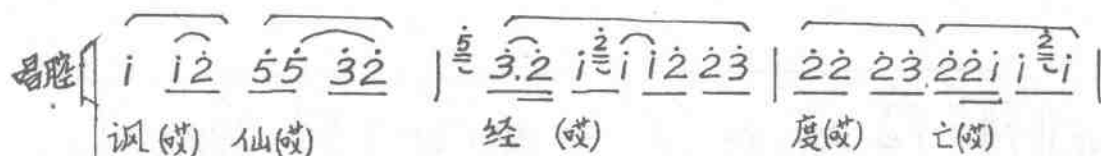 唱腔 i i2̇ 5̇5̇ 3̇2̇ | 5̇ 3̇.2̇ i 2̇ i i2̇ 2̇3̇ | 2̇2̇ 2̇3̇ 2̇2̇i i 2̇ i |
讽(哎) 仙(哎) 经 (哎) 度(哎) 亡(哎)